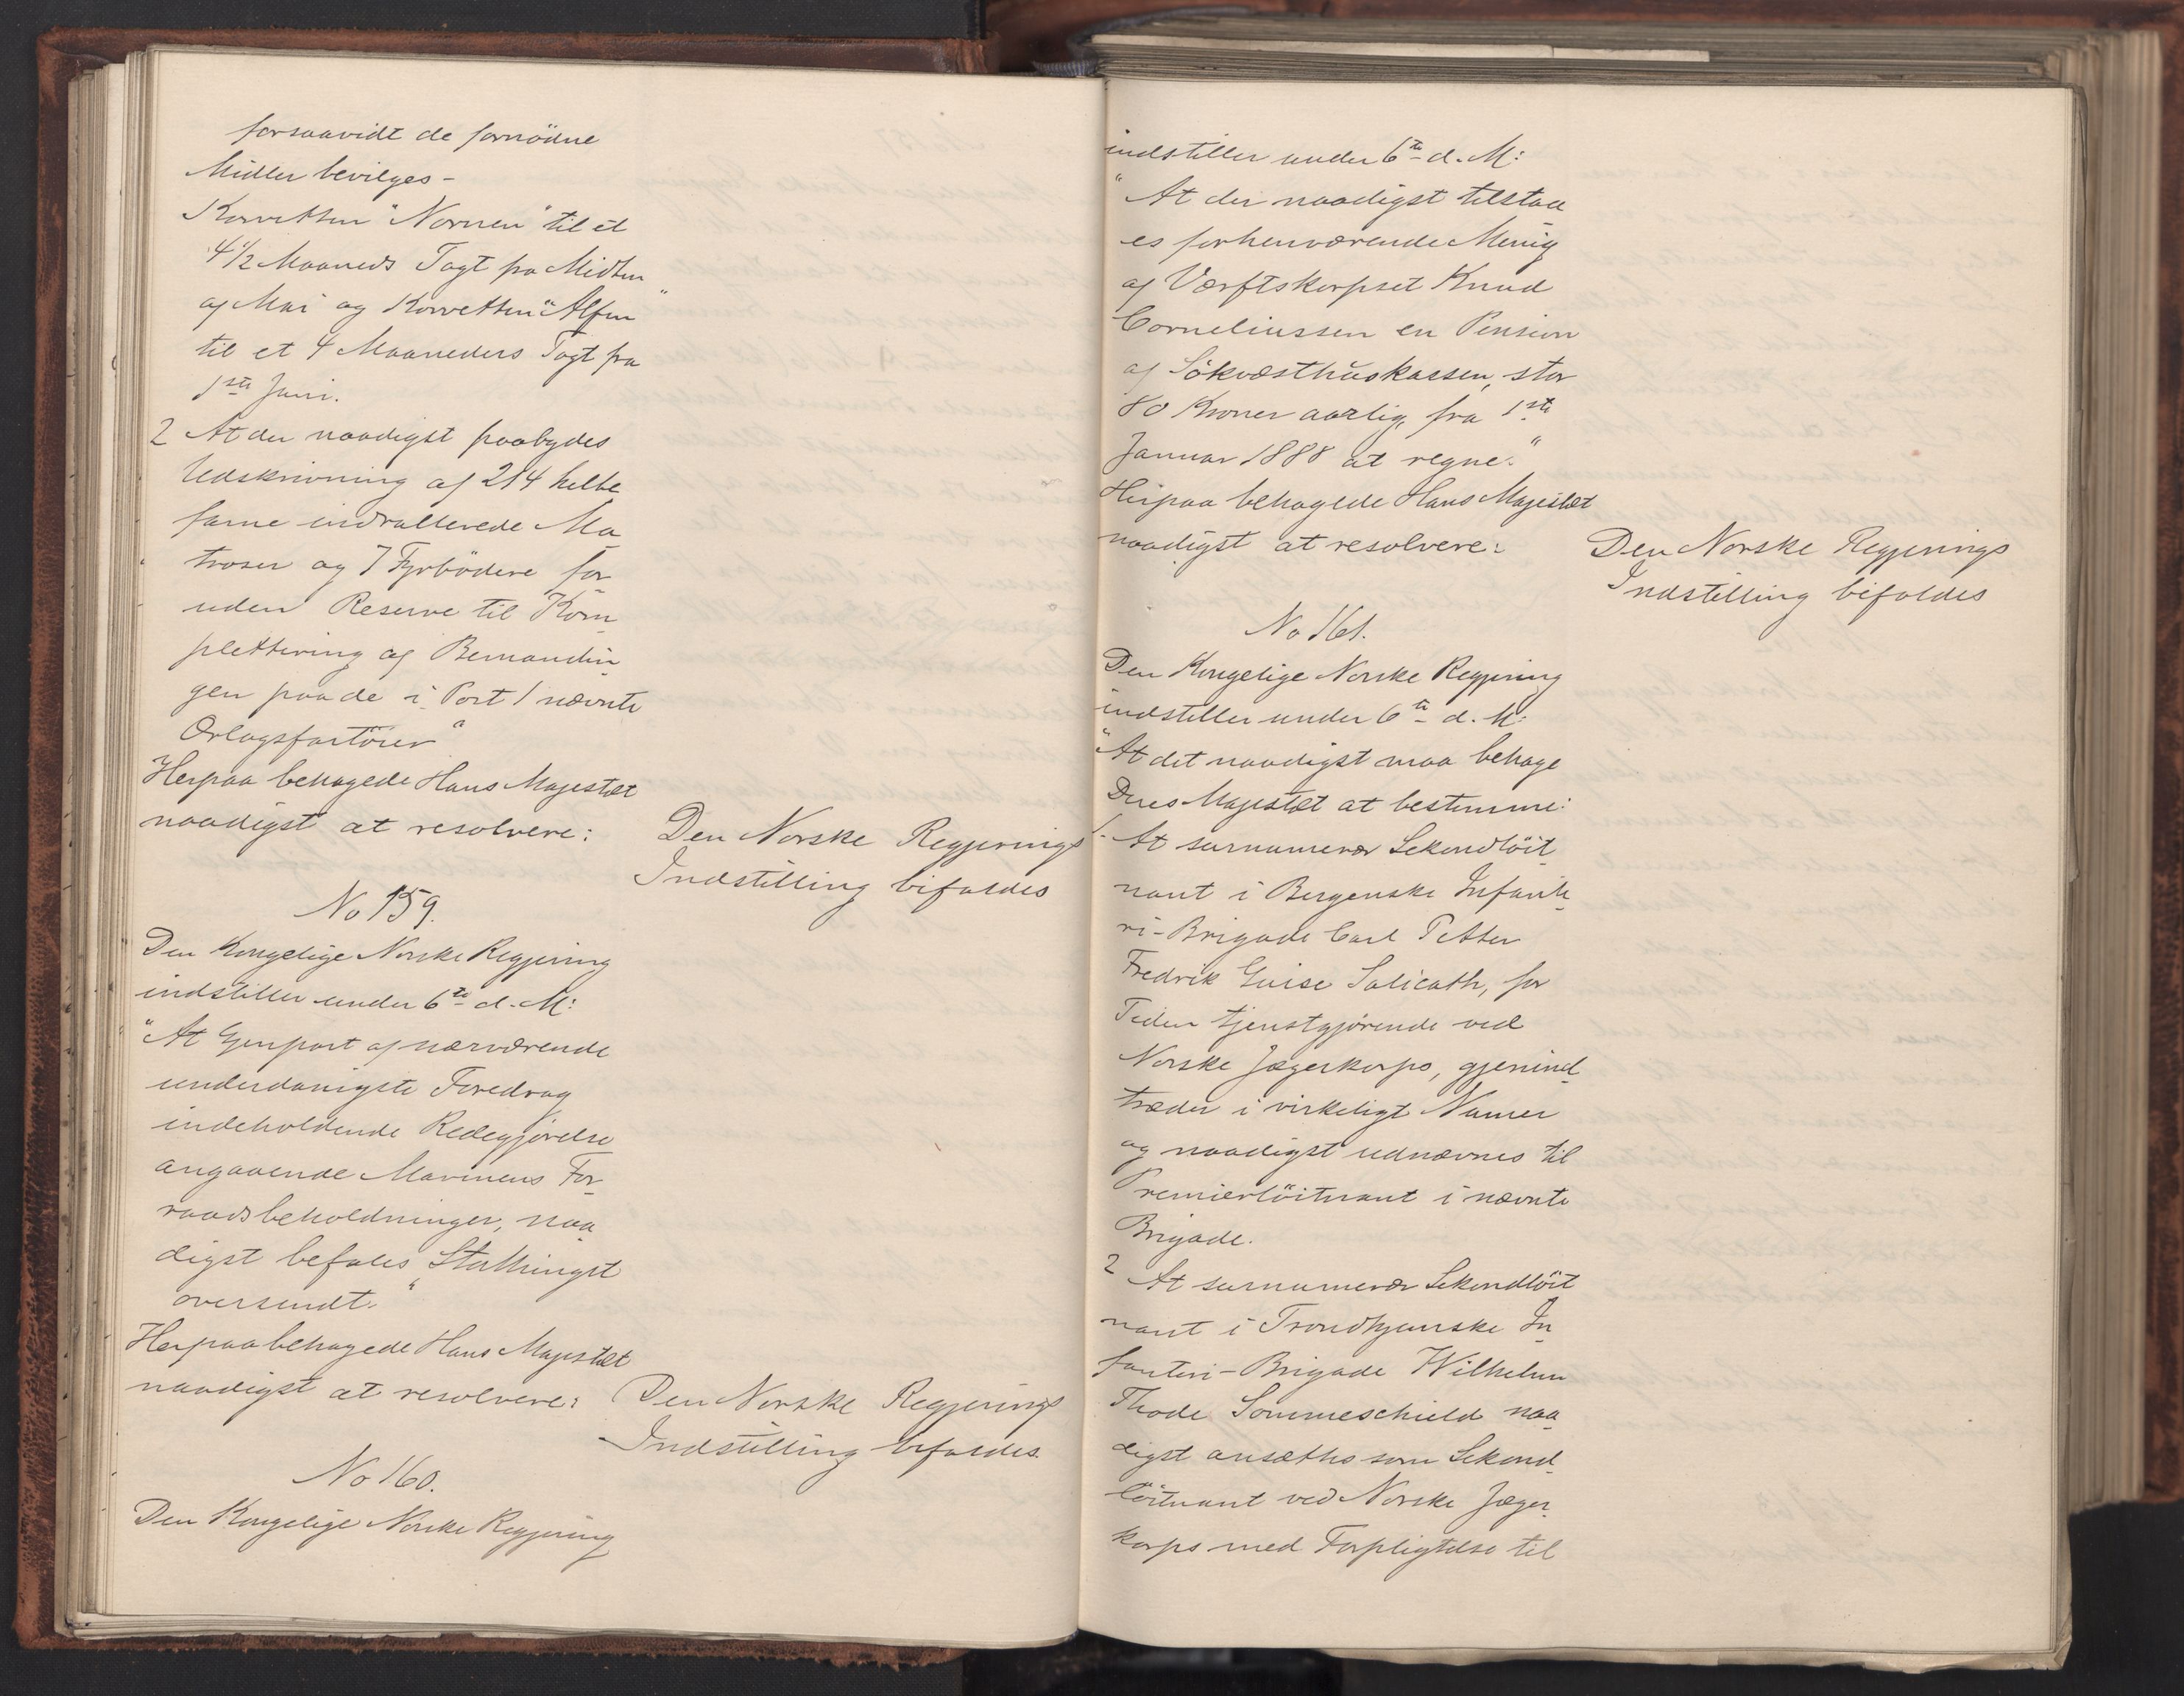 forsaavidt de fornödne
Midler bevilges -
Korvetten "Nornen" til et
4 1/2 Maaneds Togt fra Midten
af Mai og Korvetten "Alfen"
til et 4 Maaneders Togt fra
1ste Juni.
2 At der naadigst paabydes
Udskrivning af 214 helbe
farne indrullerede Ma
troser og 7 Fyrbödere for
uden Reserve til Kom
plettering af Bemandin
gen paa de i Post 1 nævnte
Orlogsfartöier"
Herpaa behagede Hans Majestæt
naadigst at resolvere:
Den Norske Regjerings
Indstilling bifaldes
No 159.
Den Kongelige Norske Regjering
indstiller under 6te d. M:
"At Genpart af nærværende
underdanigste Foredrag
indeholdende Redegjörelse
angaaende Marinens For
raadsbeholdninger, naa
digst befales Storthinget
oversendt."
Herpaa behagede Hans Majestæt
naadigst at resolvere:
Den Norske Regjerings
Indstilling bifaldes.
No 160.
Den Kongelige Norske Regjering
indstiller under 6te d. M:
"At der naadigst tilstaa
es forhenværende Menig
af Værftskorpset Knud
Corneliussen en Pension
af Sökvæsthuskassen, stor
80 Kroner aarlig, fra 1ste
Januar 1888 at regne."
Herpaa behagede Hans Majestæt
naadigst at resolvere:
Den Norske Regjerings
Indstilling bifaldes
No 161.
Den Kongelige Norske Regjering
indstiller under 6te d. M:
"At det naadigst maa behage
Deres Majestæt at bestemme:
1. At surnumerær Sekondlöit
nant i Bergenske Infante
ri-Brigade Carl Petter
Fredrik Guise Salicath, for
Tiden tjenstgjörende ved
Norske Jægerkorps, gjenind
træder i virkeligt Numer
og naadigst udnævnes til
Premierlöitnant i nævnte
Brigade.
2 At surnumerær Sekondlöit
nant i Trondhjemske In
fanteri-Brigade Wilhelm
Thode Sommeschield naa
digst ansættes som Sekond
löitnant ved Norske Jæger
korps med Forpligtelse til